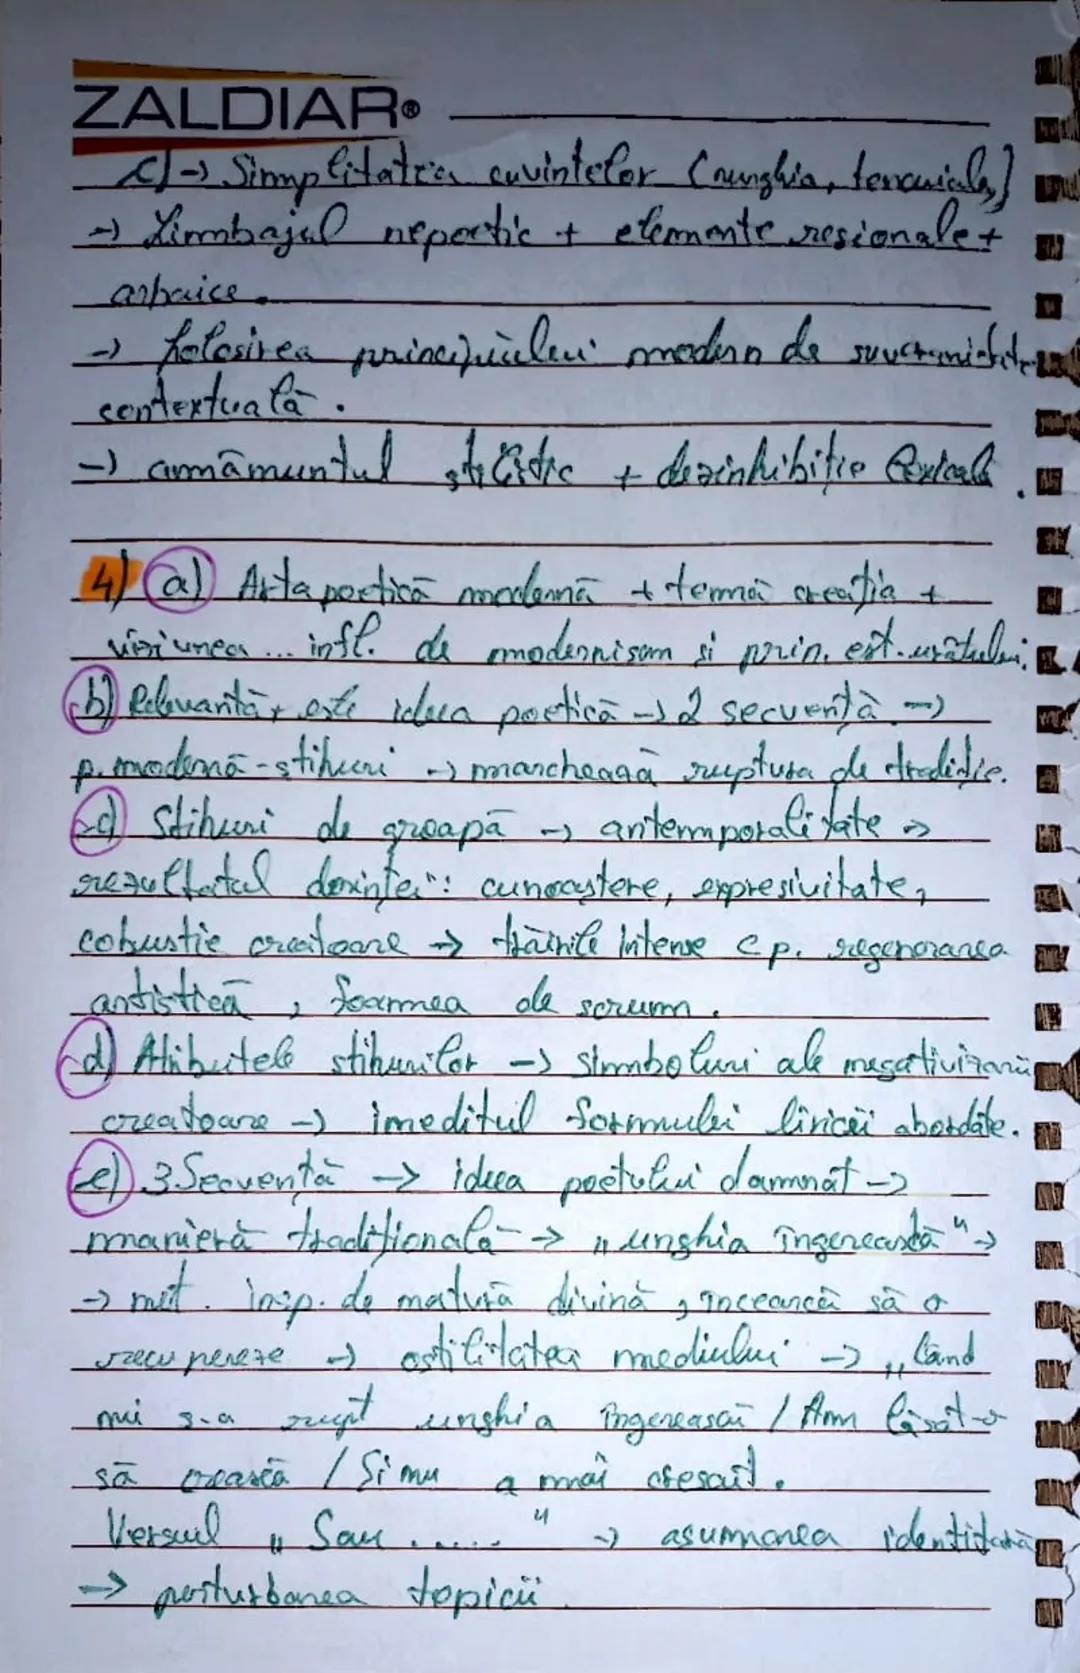 ZALDIAR®
c) → Simplitatea cuvintelor (unghia, tencuiala)
→ Limbajul nepoetic + elemente regionale +
arhaice.
→ folosirea principiului modern de suveranitate
contextuală.
→ amănuntul stilistic + dezinhibiție lexicală.
4) a) Arta poetică modernă + temă creația +
viziunea ... infl. de modernism si prin. est. urâtului.
b) Relevantă, este ideea poetică → 2 secvență →
p. modernă - stihuri → marchează ruptura de tradiție.
c) Stihuri de groapă → antemporalitate →
rezultatul dorinței: cunoaștere, expresivitate,
cobustie creatoare → trăirile intense ep. regenerarea
artistică, foamea de scrum.
d) Atributele stihurilor → simboluri ale negativizării
creatoare → ineditul formulei liricii abordate.
e) 3 Secvență → ideea poetului damnat →
manieră tradițională → „unghia îngerească" →
→ mit. insp. de natură divină, încearcă să o
recupereze → ostilitatea mediului → „Când
mi s-a rupt unghia îngerească / Am lăsat-o
să crească / Și nu a mai crescut.
Versul „Sau ....." → asumarea identitară
→ perturbarea topicii